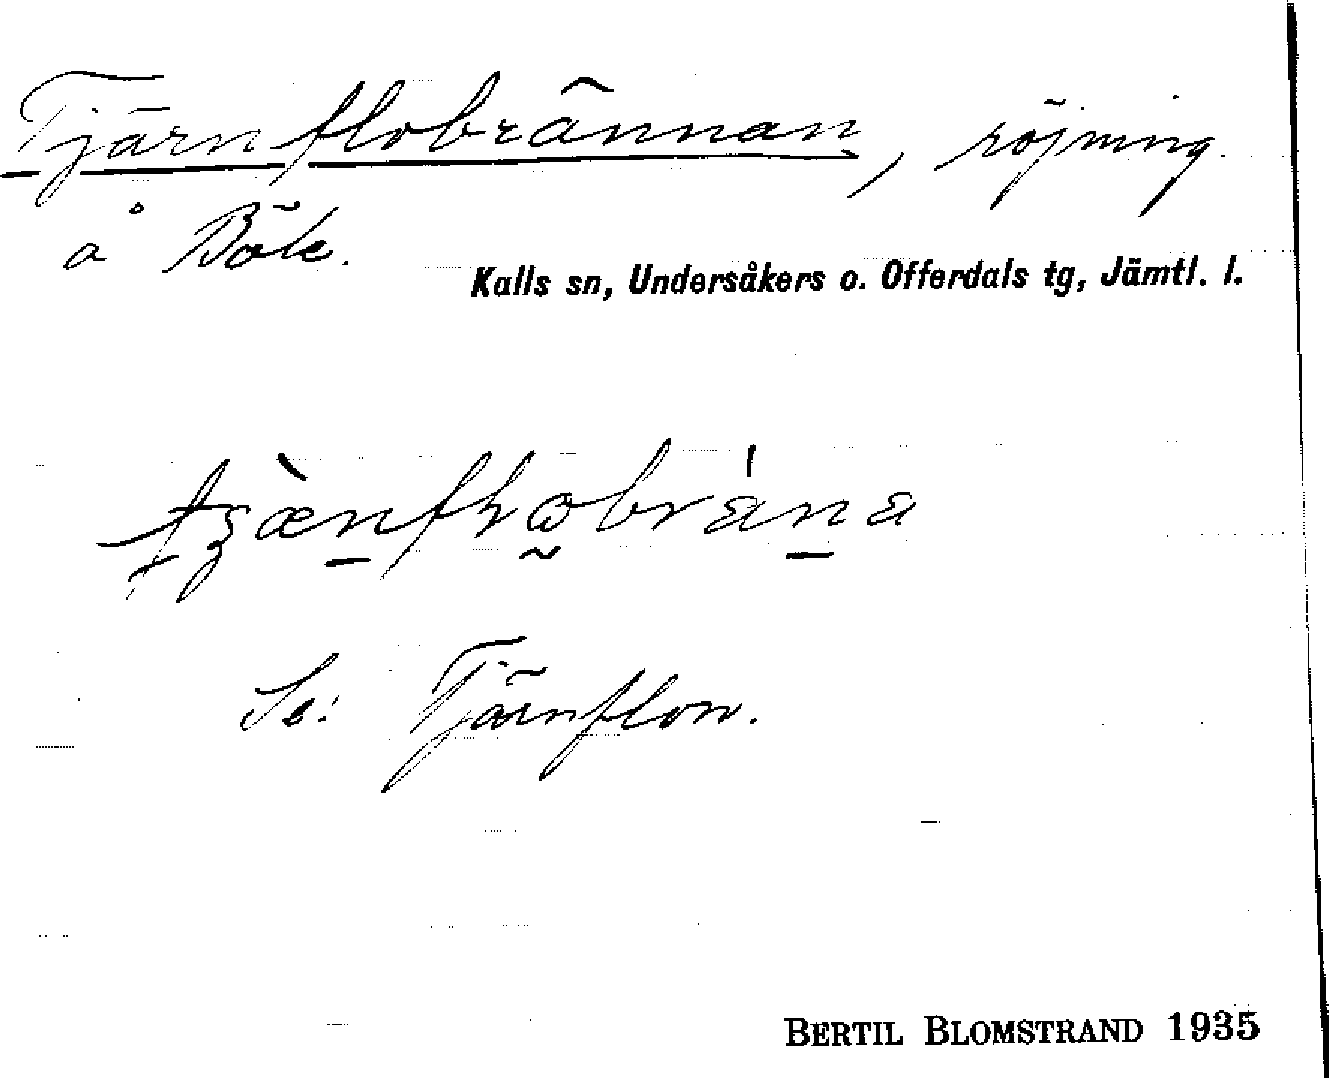 Tjärnflobrännan, röjning
å Böle.
Kalls sn, Undersåkers o. Offerdals tg, Jämtl. l.
Se: Tjärnflon.
BERTIL BLOMSTRAND 1935